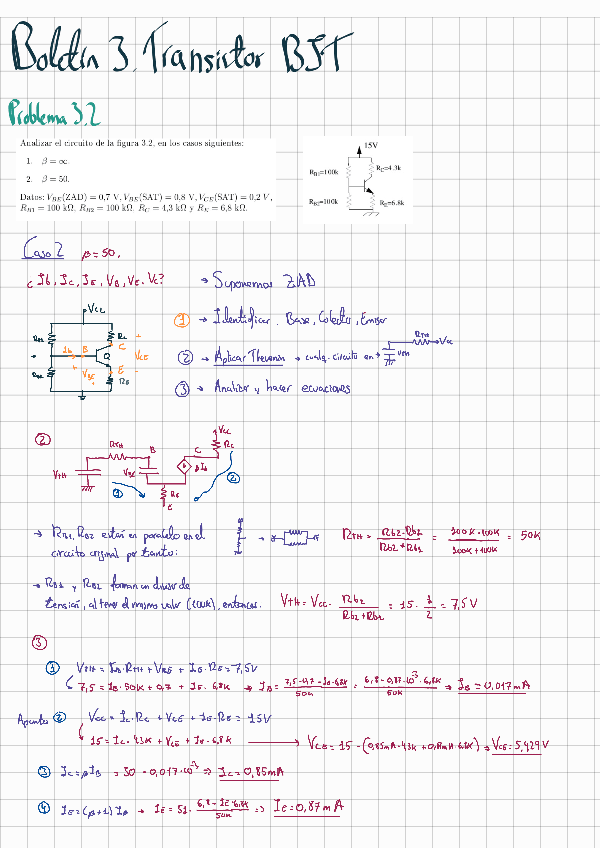 Boletín 3. Transistor BJT
Problema 3.2
Analizar el circuito de la figura 3.2, en los casos siguientes:
1. β = ∞.
2. β = 50.
Datos: V_BE(ZAD) = 0,7 V, V_BE(SAT) = 0,8 V, V_CE(SAT) = 0,2 V,
R_B1 = 100 kΩ, R_B2 = 100 kΩ, R_C = 4,3 kΩ y R_E = 6,8 kΩ.
15V
R_B1=100k
R_C=4.3k
R_B2=100k
R_E=6.8k
Caso 2 β=50.
¿ Ib, Ic, IE, VB, VE, Vc?
→ Suponemos ZAD
① → Identificar. Base, Colector, Emisor
② → Aplicar Thevenin → cualq. circuito en →
RTH
Vcc
VTH
③ → Analizar y hacer ecuaciones
Vcc
RB1
Rc
Ib
B
C
Q
VCE
RB2
VBE
E
RE
②
RTH
B
C
Vcc
Rc
VTH
VBE
βIb
①
RE
②
→ RB1, RB2 están en paralelo en el
circuito original por tanto:
RTH = Rb2·Rb1 / Rb2+Rb1 = 100K·100K / 100K+100K = 50K
→ RB1 y RB2 forman un divisor de
tensión, al tener el mismo valor (100K), entonces. VTH = Vcc · Rb2 / Rb2+Rb1 = 15 · 1/2 = 7,5 V
③
① VTH = IB·RTH + VBE + IE·RE = 7,5V
7,5 = IB·50K + 0,7 + IE·6,8K → IB = 7,5-0,7-IE·6,8K / 50K = 6,8-0,87·10⁻³·6,8K / 50K ⇒ IB = 0,017mA
Apuntes ② Vcc = Ic·Rc + VCE + IE·RE = 15V
15 = Ic·4,3K + VCE + IE·6,8K → VCE = 15 - (0,85mA·4,3K + 0,87mA·6,8K) ⇒ VCE = 5,429V
③ Ic = βIB = 50·0,017·10⁻³ ⇒ Ic = 0,85mA
④ IE = (β+1) IB → IE = 51 · 6,8-IE·6,8K / 50K ⇒ IE = 0,87mA